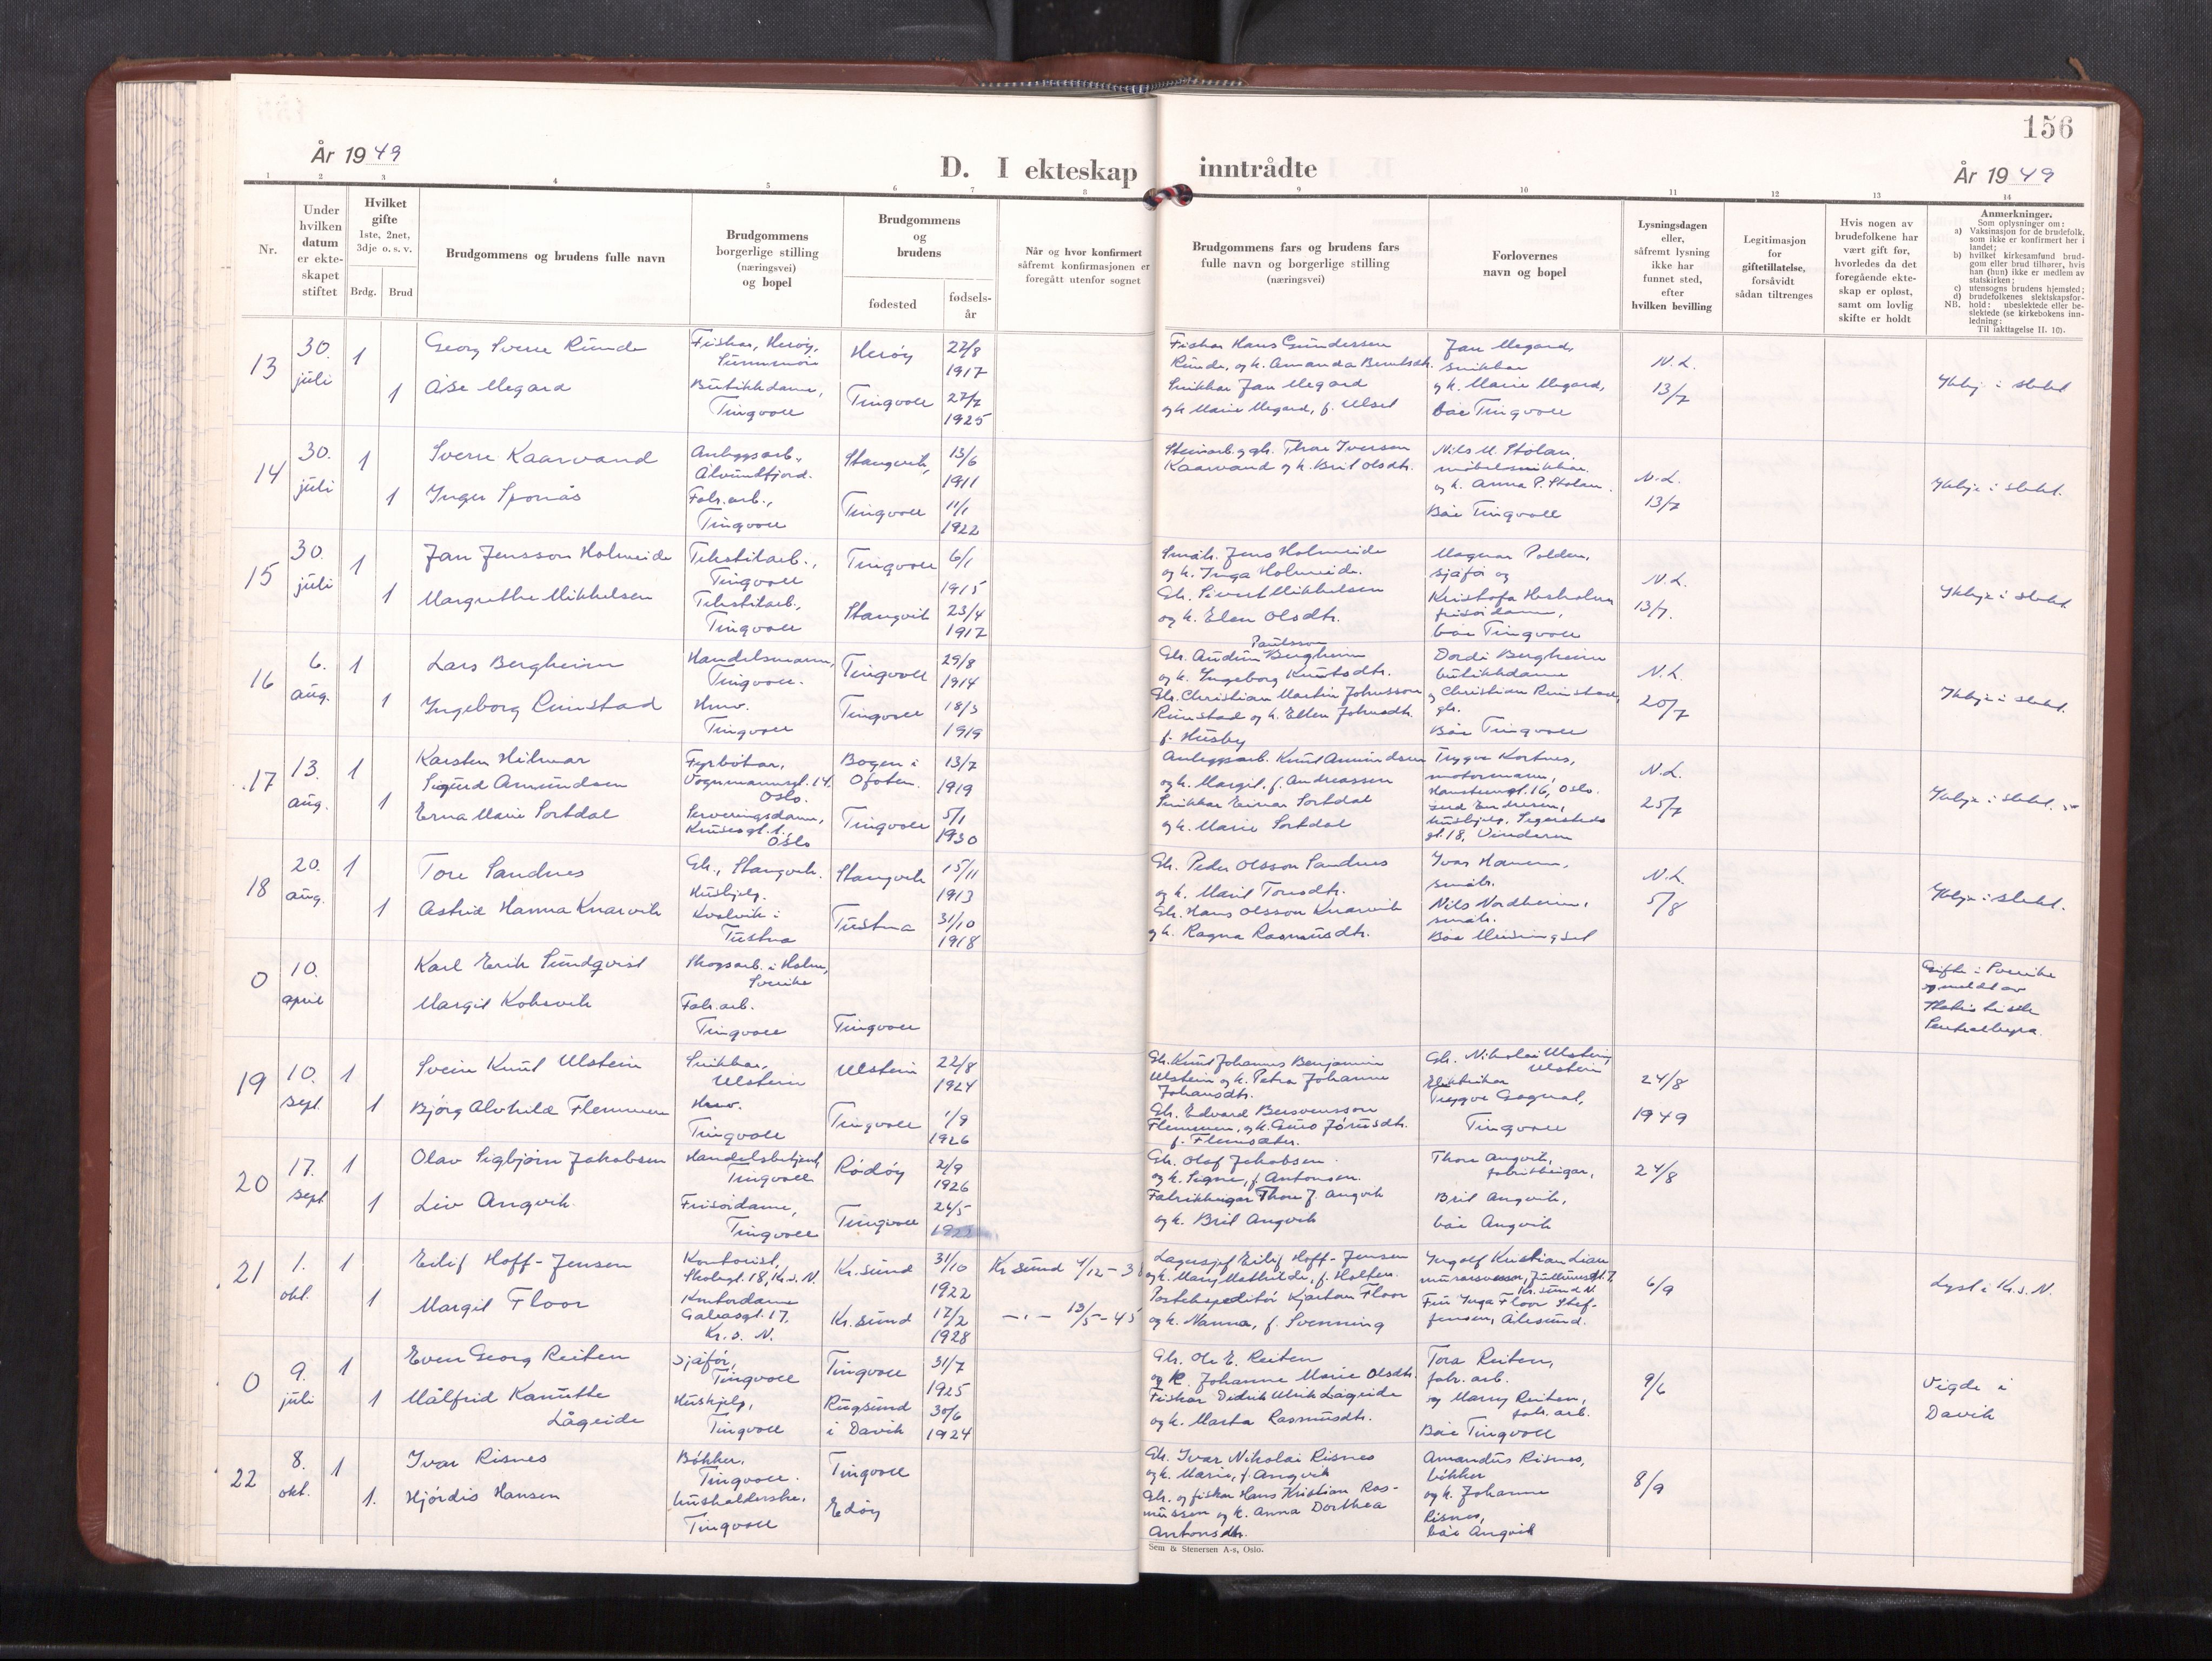 156
År 1949
D. I ekteskap inntrådte
År 1949
1 2 3 4 5 6 7 8 9 10 11 12 13 14
Nr.
Under hvilken datum er ekteskapet stiftet
Hvilket gifte
1ste, 2net, 3dje o. s. v.
Brdg. Brud
Brudgommens og brudens fulle navn
Brudgommens borgerlige stilling (næringsvei) og bopel
Brudgommens og brudens
fødested
fødsels-år
Når og hvor konfirmert
såfremt konfirmasjonen er foregått utenfor sognet
Brudgommens fars og brudens fars fulle navn og borgerlige stilling (næringsvei)
Forlovernes navn og bopel
Lysningsdagen eller, såfremt lysning ikke har funnet sted, efter hvilken bevilling
Legitimasjon for giftetillatelse, forsåvidt sådan tiltrenges
Hvis nogen av brudefolkene har vært gift før, hvorledes da det foregående ekte-skap er opløst, samt om lovlig skifte er holdt
Anmerkninger.
Som oplysninger om:
a) Vaksinasjon for de brudefolk, som ikke er konfirmert her i landet;
b) hvilket kirkesamfund brud-gom eller brud tilhører, hvis han (hun) ikke er medlem av statskirken;
c) utensogns brudens hjemsted;
d) brudefolkenes slektskapsfor-hold: ubeslektede eller be-slektede (se kirkebokens inn-ledning:
NB.
Til iakttagelse II. 10).
13
30. juli
1
Georg Sverre Runde
Fiskar, Herøy,
Sunnmøre
Herøy
27/8
1917
1
Åse Megard
Butikkdame,
Tingvoll
Tingvoll
27/7
1925
Fiskar Hans Gundersen
Runde, og k. Amanda Berntsdtr.
Snikkar Jan Megard
og k. Marie Megard, f. Ulset
Jan Megard,
snikkar
og k. Marie Megard,
båe Tingvoll
N. L.
13/7
Ikkje i slekt
14
30. juli
1
Sverre Kaarvand
Anleggsarb.,
Ålvundfjord.
Stangvik,
13/6
1911
1
Inger Sponås
Fabr.arb.,
Tingvoll
Tingvoll
11/1
1922
Steinarb. og gbr. Thore Iversen
Kaarvand og k. Brit Olsdtr.
Nils M. Stolan,
møbelsnikkar
og k. Anna P. Stolan.
Båe Tingvoll
N. L.
13/7
Ikkje i slekt.
15
30. juli
1
Jan Jensson Holmeide
Tekstilarb.,
Tingvoll
Tingvoll
6/1
1915
1
Margrethe Mikkelsen
Tekstilarb.,
Tingvoll
Stangvik
23/4
1917
Småbr. Jens Holmeide
og k. Inga Holmeide.
Gbr. Sivert Mikkelsen
og k. Elen Olsdtr.
Magnar Polden,
sjåfør og
frisørdame,
båe Tingvoll
N. L.
13/7.
Ikkje i slekt
16
6. aug.
1
Lars Bergheim
Handelsmann,
Tingvoll.
Tingvoll
29/8
1914
1
Ingeborg Rimstad
Hmv.
Tingvoll
Tingvoll
18/3
1919
Paulsson
Gbr. Audun Bergheim
og k. Ingeborg Knutsdtr.
Gbr. Christian Martin Johnsson
Rimstad og k. Ellen Johnsdtr.
f. Husby
Dordi Bergheim
butikkdame
og Christian Rimstad,
gbr.
Båe Tingvoll
N. L.
20/7
Ikkje i slekt.
17
13. aug.
1
Karsten Hilmar
Sigurd Amundsen
Fyrbøtar,
Vognmannsgt. 14,
Oslo.
Bogen i
Ofoten.
13/7
1919
1
Erna Marie Sortdal
Serveringsdame,
Oslo
Tingvoll
5/1
1930
Anleggsarb. Knut Amundsen
og k. Margit, f. Andreassen
Snikkar Einar Sortdal
og k. Marie Sortdal
Trygve Kortnes,
motormann,
Hansteensgt. 16, Oslo.
Gerd Endresen,
hushjelp, Segerstads
gt. 18, Vinderen
N. L.
25/7
Ikkje i slekt.
18
20. aug.
1
Tore Sandnes
Gbr., Stangvik.
Stangvik
15/11
1913
1
Astrid Hanna Knarvik
Hushjelp,
Kvalvik i
Tustna
Tustna
31/10
1918
Gbr. Peder Olsson Sandnes
og k. Marit Toresdtr.
Gbr. Hans Olsson Knarvik
og k. Ragna Rasmusdtr.
Ivar Hamnes,
småbr.
Nils Nordheim,
småbr.
Båe Meisingset
N. L.
5/8
Ikkje i slekt.
0
10. april
Karl Erik Sundqvist
Skogsarb. i Holm,
Sverike
Margit Kolsvik
Fabr.arb.
Tingvoll
Tingvoll
Gifte i Sverike
og meldt av
Statistisk
Sentralbyrå.
19
10. sept.
1
Svein Knut Ulstein
Snikkar,
Ulstein
Ulstein
22/8
1924
1
Bjørg Alvhild Flemmen
Hmv.
Tingvoll
Tingvoll
1/9
1926
Gbr. Knut Johannes Benjamin
Ulstein og k. Petra Johanne
Johansdtr.
Gbr. Edvard Bersvensson
Flemmen, og k. Guro Jörusdtr.
f. Flemsæter.
Gbr. Nikolai Ulstein,
Ulstein
Elektrikar
Trygve Gagnat,
Tingvoll
24/8
1949
20
17. sept.
1
Olav Sigbjørn Jakobsen
Handelsbetjent,
Tingvoll
Rødøy
2/9
1926
1
Liv Angvik
Frisørdame,
Tingvoll
Tingvoll
26/5
1922
Gbr. Olaf Jakobsen
og k. Signe, f. Antonsen.
Fabrikkeigar Thore J. Angvik
og k. Brit Angvik
Thore Angvik,
fabrikkeigar,
Brit Angvik,
båe Angvik
24/8
21
1. okt.
1
Eilif Hoff-Jensen
Kontorist,
Skolegt. 18, Kr.s. N.
Kr.sund
31/10
1922
Kr.sund 4/12-3
1
Margit Floor
Kontordame
Galeasgt. 17,
Kr. s. N.
Kr.sund
17/2
1928
- " - 13/5-45
Lagersjef Eilif Hoff-Jensen
og k. Mary Mathilde, f. Holten.
Postekspeditør Kjartan Floor
og k. Nanna, f. Svenning
Ingolf Kristian Lian
Kr.sund N.
Fru Inga Floor Stef-
fensen, Ålesund.
6/9
Lyst i Kr. s. N.
0
9. juli
1
Even Georg Reiten
Sjåfør,
Tingvoll
Tingvoll
31/7
1925
1
Målfrid Kanutte
Lågeide
Hushjelp,
Tingvoll
Rugsund
i Davik
30/6
1924
Gbr. Ole E. Reiten
og k. Johanne Marie Olsdtr.
Fiskar Didrik Ulrik Lågeide
og k. Marta Rasmusdtr.
Tora Reiten,
fabr. arb.
og Marry Reiten,
fabr. arb.
Båe Tingvoll
9/6
Vigde i
Davik
22
8. okt.
1
Ivar Risnes
Bøkker,
Tingvoll.
Tingvoll
1.
Hjørdis Hansen
Husholderske,
Tingvoll
Edøy
Gbr. Ivar Nikolai Risnes
og k. Marie, f. Angvik
Gbr. og fiskar Hans Kristian Ras-
mussen og k. Anna Dorthea
Antonsdtr.
Amandus Risnes,
bøkker
og k. Johanne
Risnes,
båe Angvik
8/9
Sem & Stenersen A-s, Oslo.